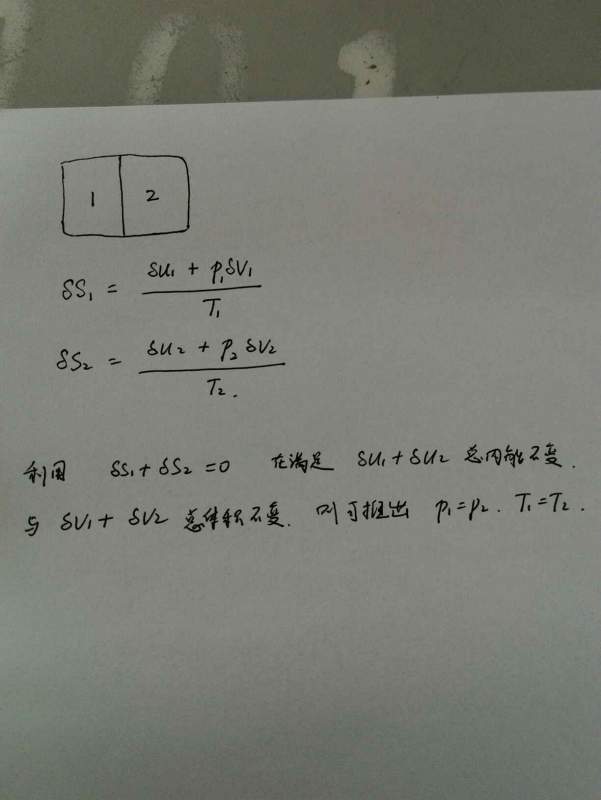 101
1 2
δS₁ = (δU₁ + p₁δV₁) / T₁
δS₂ = (δU₂ + p₂δV₂) / T₂.
利用 δS₁+δS₂=0 在满足 δU₁+δU₂ 总内能不变.
与 δV₁+δV₂ 总体积不变. 则可推出 p₁=p₂. T₁=T₂.